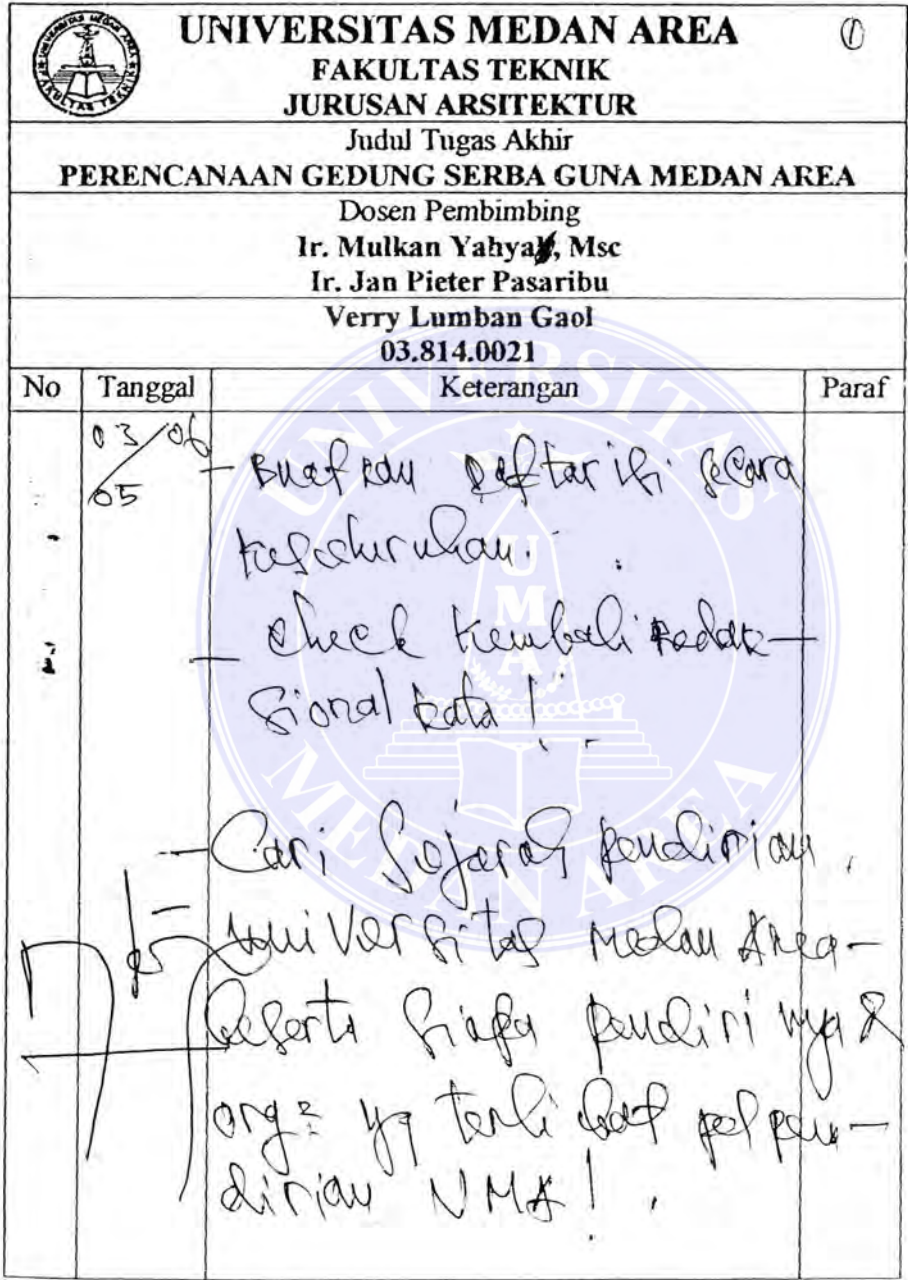 UNIVERSITAS MEDAN AREA
①
FAKULTAS TEKNIK
JURUSAN ARSITEKTUR
Judul Tugas Akhir
PERENCANAAN GEDUNG SERBA GUNA MEDAN AREA
Dosen Pembimbing
Ir. Mulkan Yahya, Msc
Ir. Jan Pieter Pasaribu
Verry Lumban Gaol
03.814.0021
No Tanggal Keterangan Paraf
03/06
05
- Buatkan daftar isi secara
keseluruhan.
- check kembali redak-
sional kata!
- Cari Sejarah pendirian
universitas Medan Area-
beserta siapa pendirinya &
org² yg terlibat pd pen-
dirian UMA!
UNIVERSITAS
UMA
MEDAN AREA